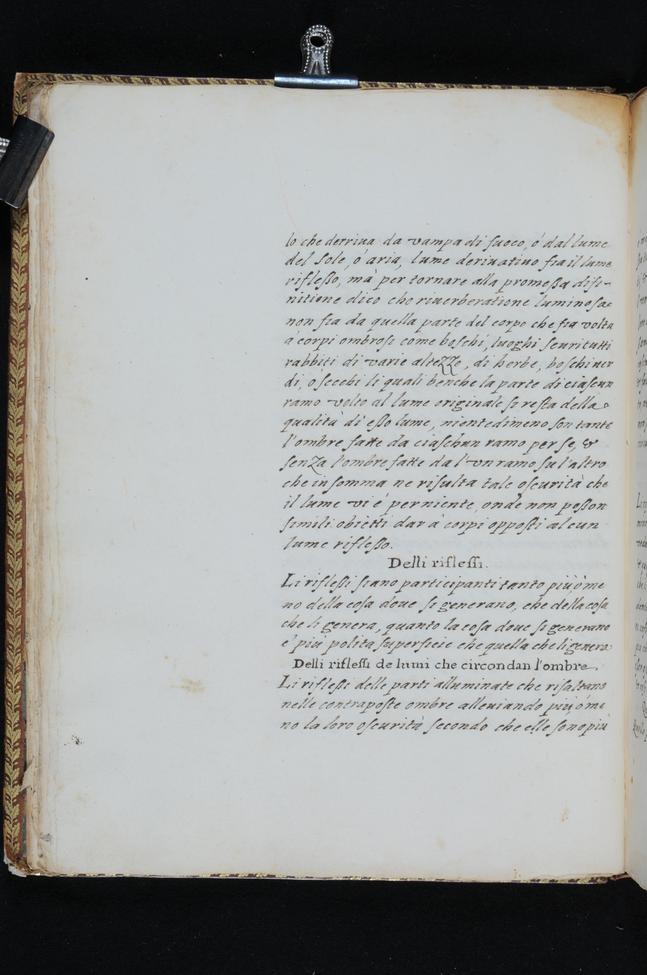 lo che derriua da vampa di fuoco, ó dal lume
del sole, ó aria, lume deriuatiuo fia il lume
riflesso, mà per tornare alla promessa difi-
nitione dico che riuerberatione luminosa
non fia da quella parte del corpo che fia volta
a corpi ombrosi come boschi, luoghi scuri tutti
rabbiti di varie altezze, di herbe, boschi uer
di, o secchi li quali benche la parte di ciascun
ramo volto al lume originale si uesta della
qualità di esso lume, nientedimeno son tante
l'ombre fatte da ciaschun ramo per se, &
senza l'ombre fatte dal'vn ramo sul'altro
che in somma ne risulta tale oscurità che
il lume vi é per niente, onde non posson
simili obietti dar à corpi opposti alcun
lume riflesso.
Delli riflessi.
Li riflessi siano participanti tanto più, ó me
no della cosa doue si generano, che della cosa
che li genera, quanto la cosa doue si generano
é piu polita superficie che quella che li genera
Delli riflessi de lumi che circondan l'ombre
Li riflessi delle parti alluminate che risaltano
nelle contraposte ombre alleuiando più, ó me
no la loro oscurità secondo che elle sono più